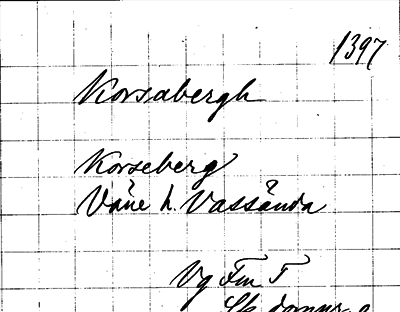 1397
Korsabergh
Korseberg
Väne h. Vassända
Vg Fm T